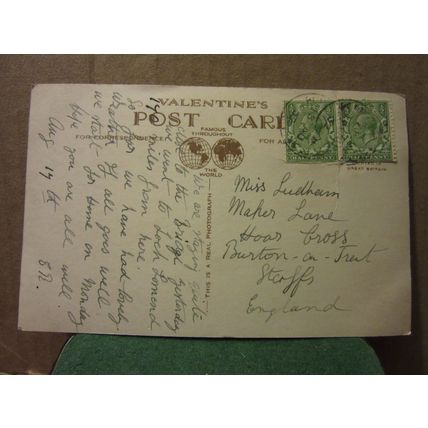 VALENTINE'S
POST CARD
FAMOUS
THROUGHOUT
THE WORLD
FOR CORRESPONDENCE
FOR AD
THIS IS A REAL PHOTOGRAPH
HALFPENNY
HALFPENNY
GREAT BRITAIN
We are staying quite
close to the Bridge yesterday
we went to Loch Lomond
miles from here.
So far we have had lovely
weather if all goes well
we start for home on Monday
hope you are all well
Aug 19th
Miss Ludham
Maker Lane
Hoar Cross
Burton-on-Trent
Staffs
England